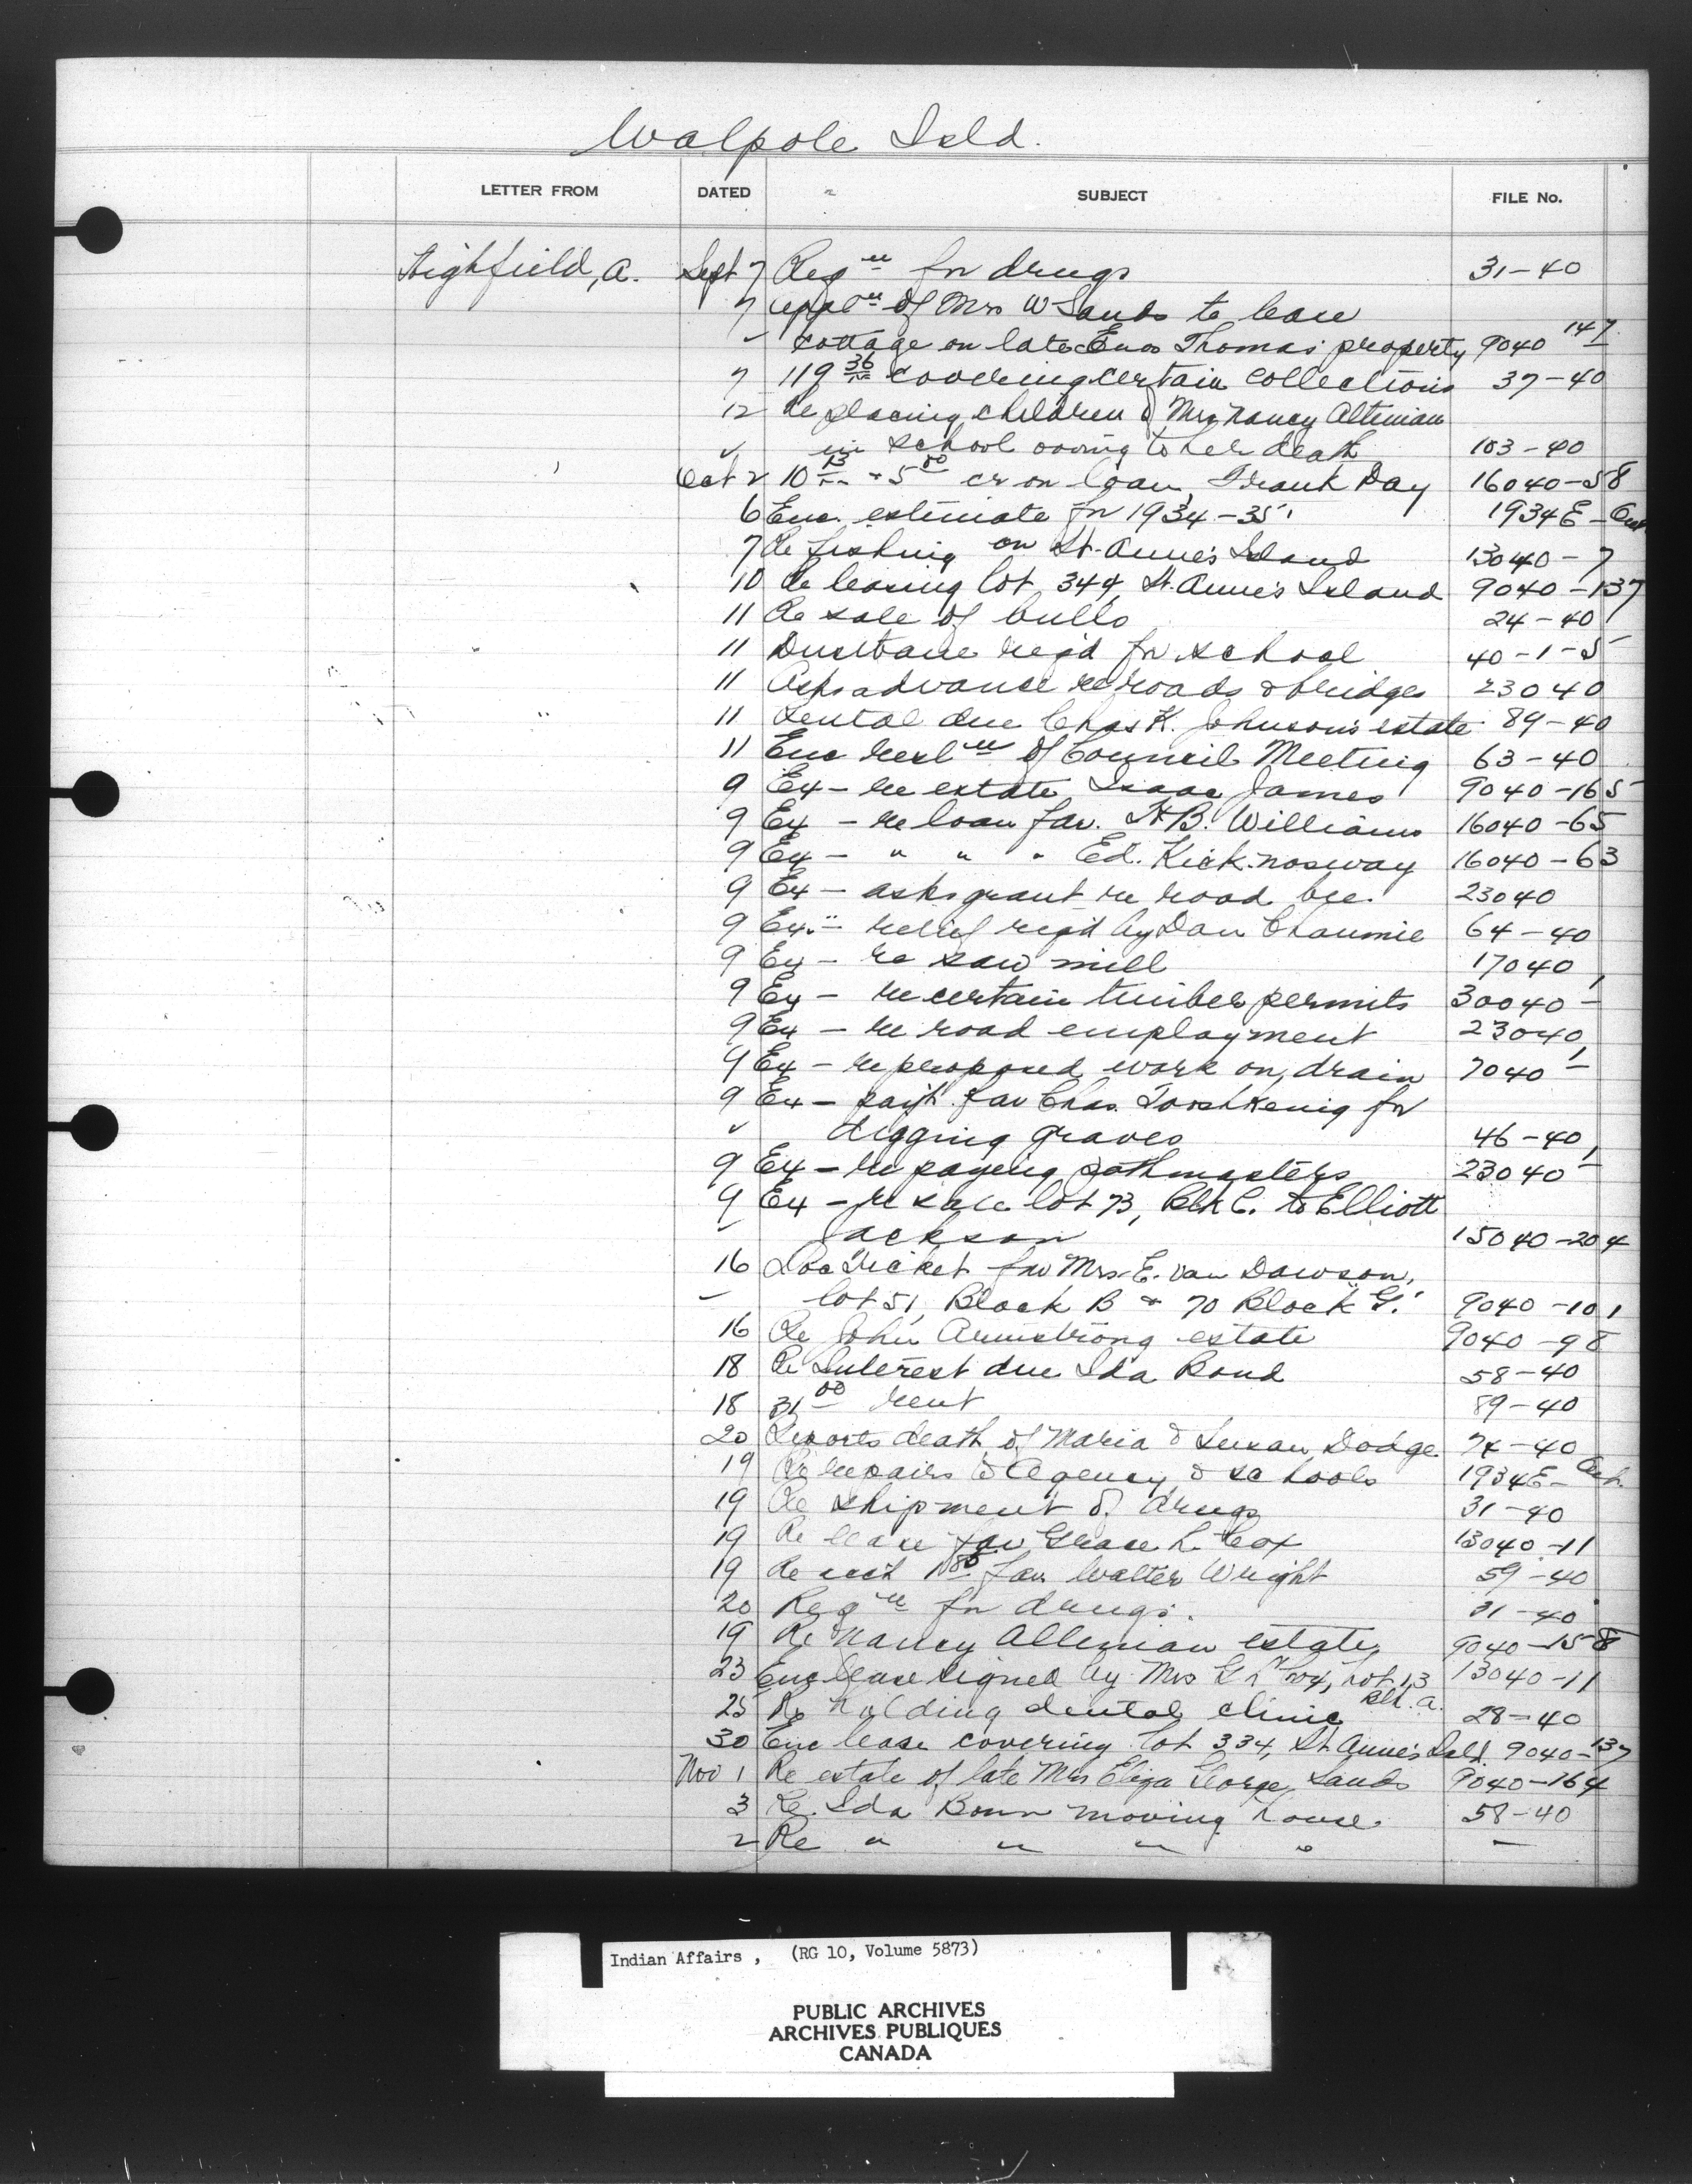 Walpole Isld.
LETTER FROM DATED SUBJECT FILE No.
Highfield, A. Sept 7 Reqn for drugs 31-40
7 appln of Mrs W Sands to lease
" cottage on late Enos Thomas' property 9040 147
7 119 36/xx covering certain collections 37-40
12 Re placing children of Mrs Nancy Altiman
" in school owing to her death 103-40
Oct 2 10 13/xx + 5 00 cr on loan, Frank Day 16040-58
6 Enc. estimate for 1934-35 1934E-
7 Re fishing on St. Anne's Island 13040-7
10 Re leasing lot 344, St. Anne's Island 9040-137
11 Re sale of bulls 24-40
11 Dustbane reqd for school 40-1-5
11 Asks advance re roads & bridges 23040
11 Rental due Chas K. Johnson's estate 89-40
11 Enc resln of Council Meeting 63-40
9 Ex - re estate Isaac James 9040-165
9 Ex - re loan fav. H.B. Williams 16040-65
9 Ex - " " " Ed. Kicknosway 16040-63
9 Ex - asks grant re road bee. 23040
9 Ex. - relief reqd by Dan Chaumie 64-40
9 Ex - re saw mill 17040
9 Ex - re certain timber permits 30040-1
9 Ex - re road employment 23040
9 Ex - re proposed work on drain 7040-1
9 Ex - payt. fav Chas. Sooshkenig for
" digging graves 46-40
9 Ex - re paying pathmasters 23040-1
9 Ex - re sale lot 73, Blk C. to Elliott
" Jackson 15040-204
16 Loc Ticket fav Mrs. E. Van Dawson,
" lot 51, Block B & 70 Block "G." 9040-101
16 Re John Armstrong estate 9040-98
18 Re Interest due Ida Bond 58-40
18 31 00 rent 89-40
20 Reports death of Maria & Susan Dodge 74-40
19 Re repairs to Agency & schools 1934E-
19 Re shipment of drugs 31-40
19 Re lease fav Grace L. Cox 13040-11
19 Re acct fav Walter Wright 59-40
20 Reqn for drugs. 31-40
19 Re Nancy Altiman estate 9040-158
23 Enc lease signed by Mrs G L Cox, Lot 13 13040-11
Blk. A.
25 Re holding dental clinic 28-40
30 Enc lease covering lot 334, St. Anne's Isld 9040-137
Nov 1 Re estate of late Mrs Eliza George Sands 9040-164
3 Re Ida Bonn moving house. 58-40
2 Re " " " " "
Indian Affairs, (RG 10, Volume 5873)
PUBLIC ARCHIVES
ARCHIVES PUBLIQUES
CANADA